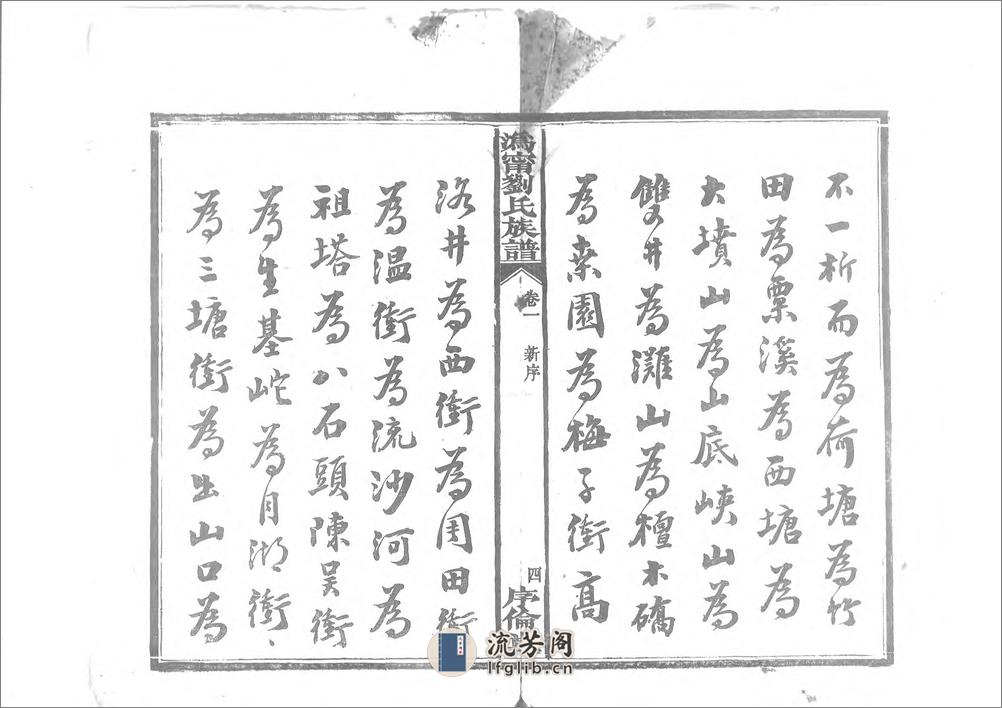 不一析而為荷塘為竹
田為栗溪為西塘為
大墳山為山底峽山為
雙井為灘山為檀木磽
為桊園為梅子衝高
溈甯劉氏族譜
卷一 新序
四
序倫
洛井為西衝為周田衝
為温衝為流沙河為
祖塔為八石頭陳吴衝
為生基岮為月湖衝、
為三塘衝為出山口為
流芳阁
lfglib.cn